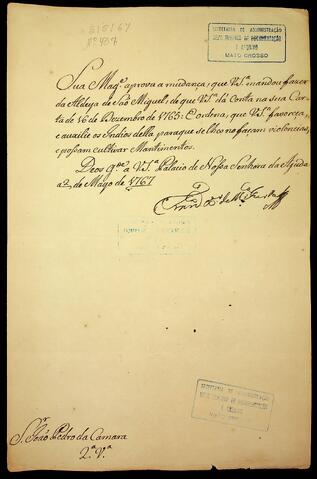 SECRETARIA DE ADMINISTRAÇÃO
DEPARTAMENTO DE DOCUMENTAÇÃO
E ARQUIVO
MATO GROSSO
Nº 487
Sua Magᵉ aprova a mudança, que V.Sª mandou fazer
da Aldeya de Saõ Miguel, de que V.Sª dá Conta na sua Car-
ta de 16 de Dezembro de 1765: E ordena, que V.Sª favoreça,
e auxilie os Indios della paraque se lhes no façam violencias,
e possam cultivar Mantimentos.
Deos gᵈᵉ a V.Sª Palacio de Nossa Senhora da Ajuda
a 2 de Março de 1767
SECRETARIA DE ADMINISTRAÇÃO
E ARQUIVO
Sʳ Joaõ Pedro da Camara
2ª Vª